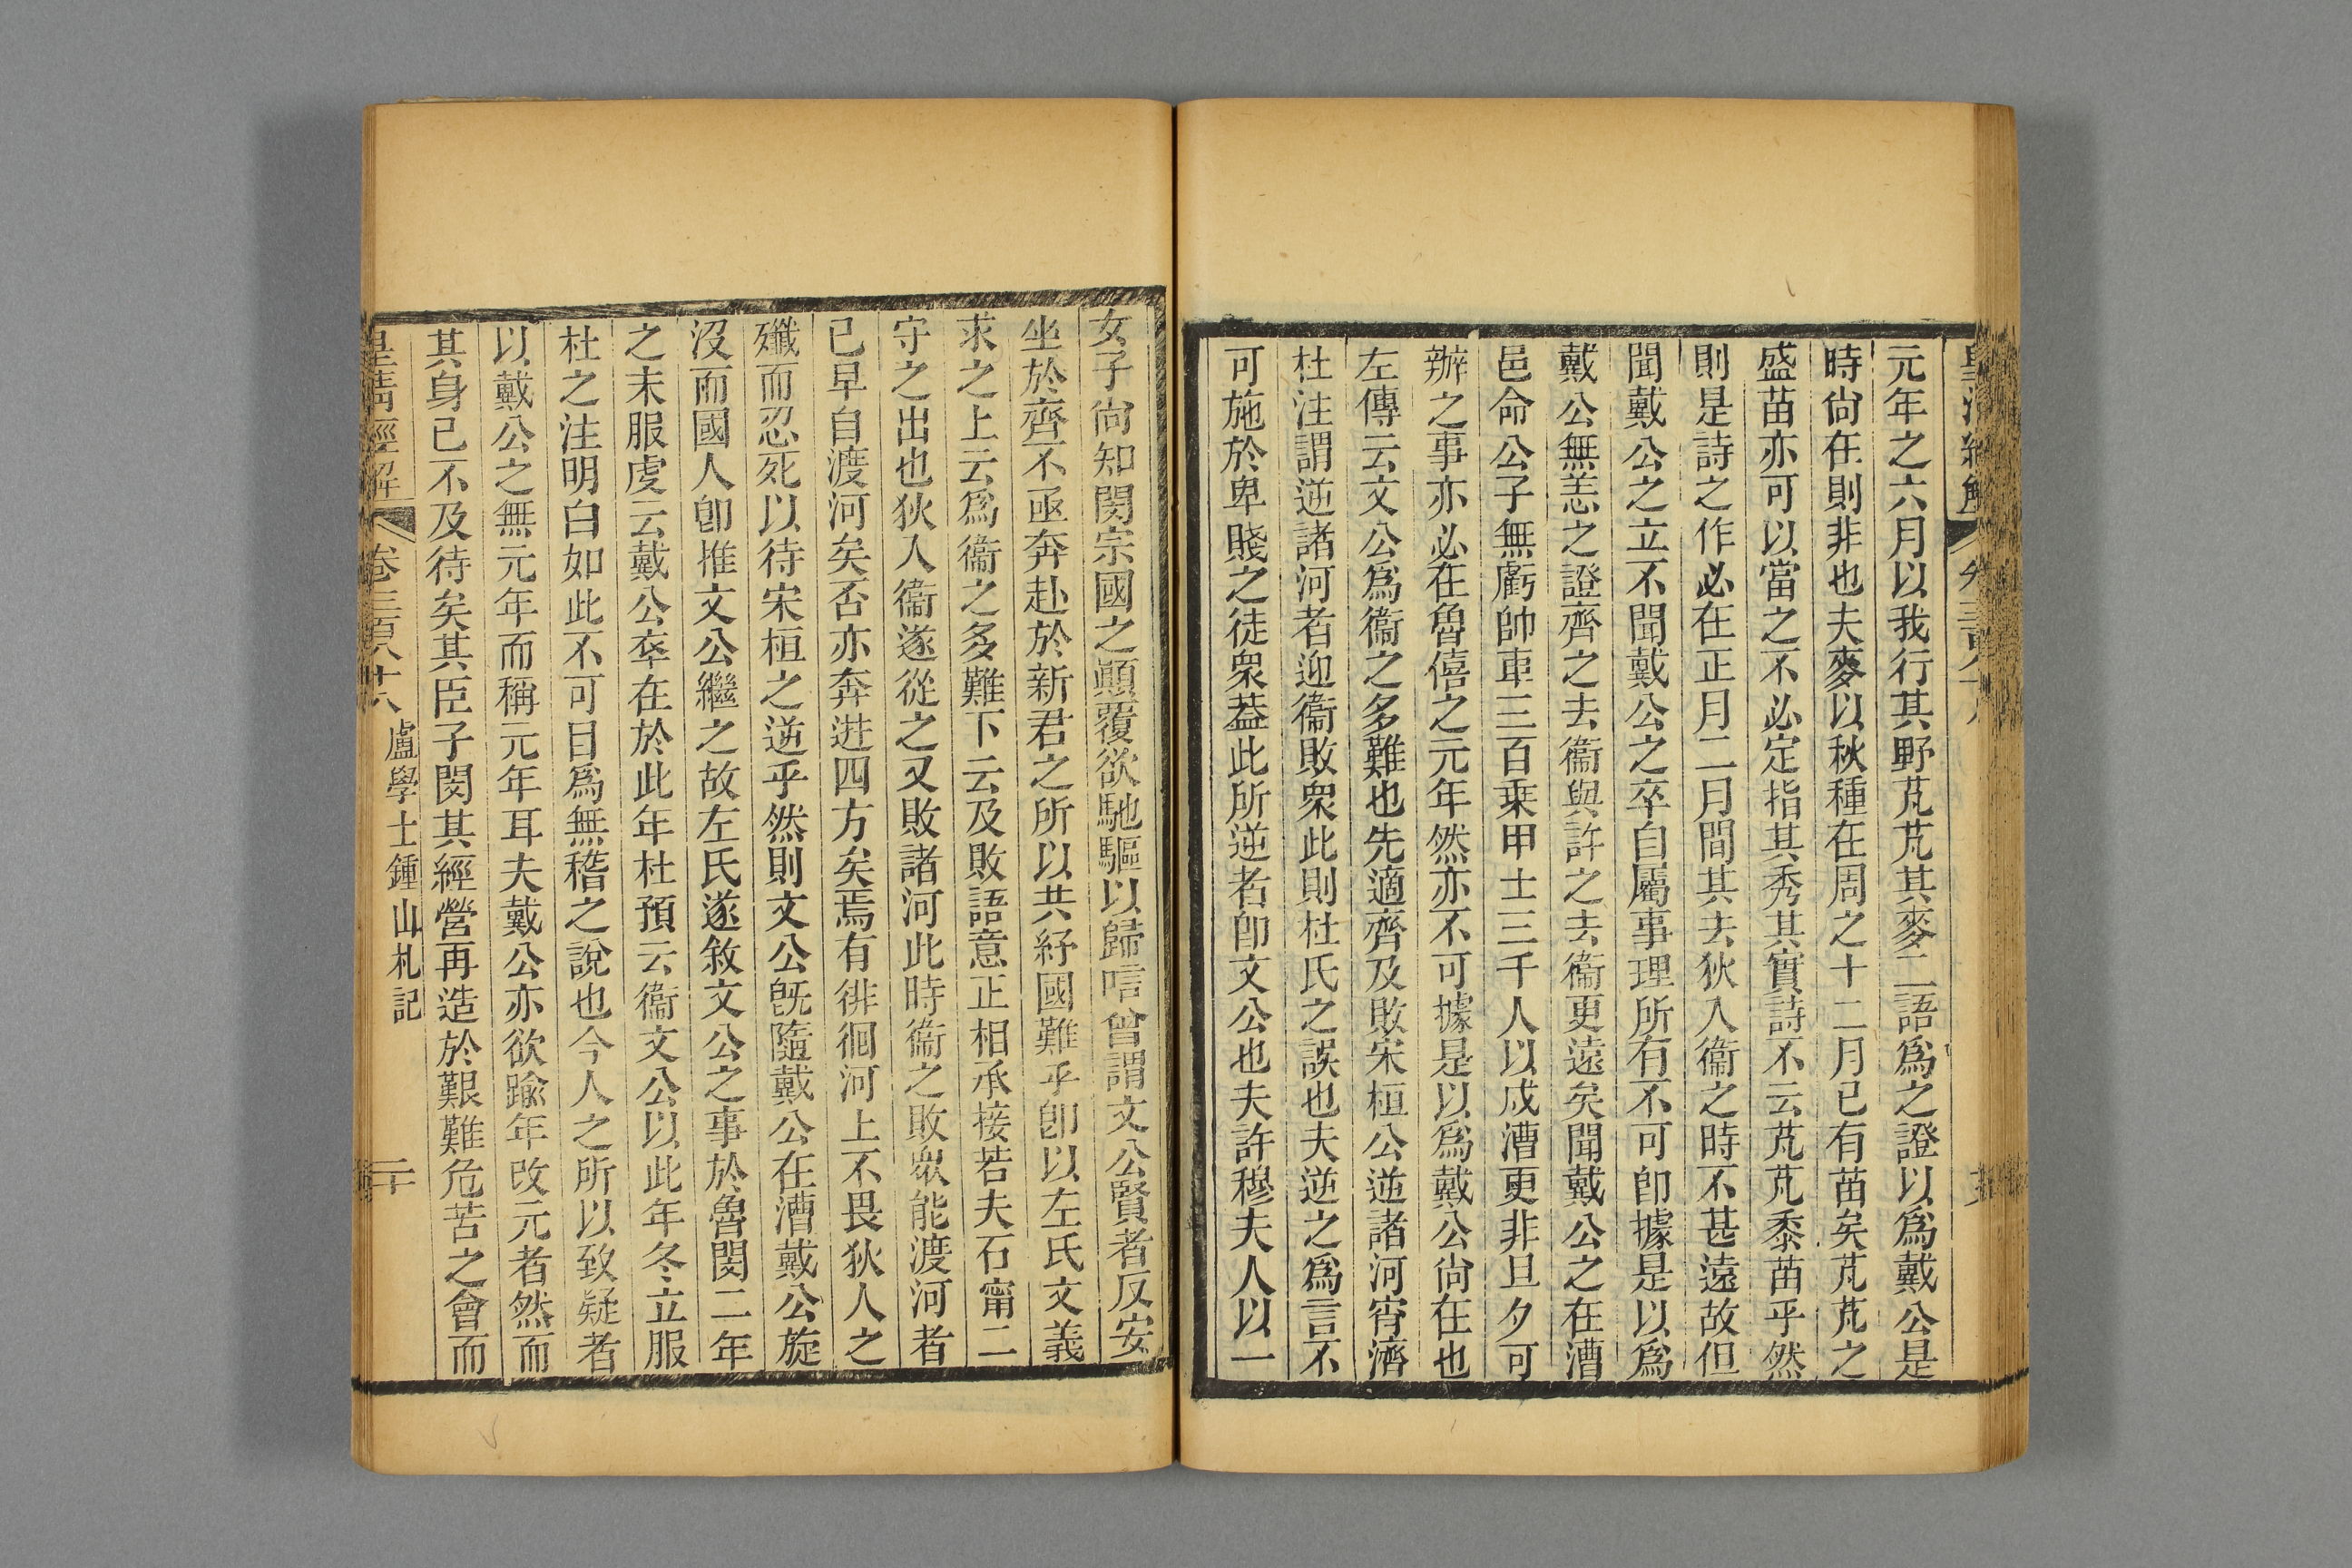 元年之六月以我行其野芃芃其麥二語爲之證以爲戴公是
時尙在則非也夫麥以秋種在周之十二月已有苗矣芃芃之
盛苗亦可以當之不必定指其秀其實詩不云芃芃黍苗乎然
則是詩之作必在正月二月間其去狄入衞之時不甚遠故但
聞戴公之立不聞戴公之卒自屬事理所有不可卽據是以爲
戴公無恙之證齊之去衞與許之去衞更遠矣聞戴公之在漕
邑命公子無虧帥車三百乗甲士三千人以戍漕更非旦夕可
辦之事亦必在魯僖之元年然亦不可據是以爲戴公尙在也
左傳云文公爲衞之多難也先適齊及敗宋桓公逆諸河宵濟
杜注謂逆諸河者迎衞敗衆此則杜氏之誤也夫逆之爲言不
可施於卑賤之徒衆葢此所逆者卽文公也夫許穆夫人以一
女子尙知閔宗國之顚覆欲馳驅以歸唁曾謂文公賢者反安
坐於齊不亟奔赴於新君之所以共紓國難乎卽以左氏文義
求之上云爲衞之多難下云及敗語意正相承接若夫石甯二
守之出也狄入衞遂從之又敗諸河此時衞之敗衆能渡河者
已早自渡河矣否亦奔迸四方矣焉有徘徊河上不畏狄人之
殲而忍死以待宋桓之逆乎然則文公旣隨戴公在漕戴公旋
沒而國人卽推文公繼之故左氏遂敘文公之事於魯閔二年
之末服虔云戴公卒在於此年杜預云衞文公以此年冬立服
杜之注明白如此不可目爲無稽之說也今人之所以致疑者
以戴公之無元年而稱元年耳夫戴公亦欲踰年改元者然而
其身已不及待矣其臣子閔其經營再造於艱難危苦之會而
皇淸經解 卷三百八十八 盧學士鍾山札記 二十